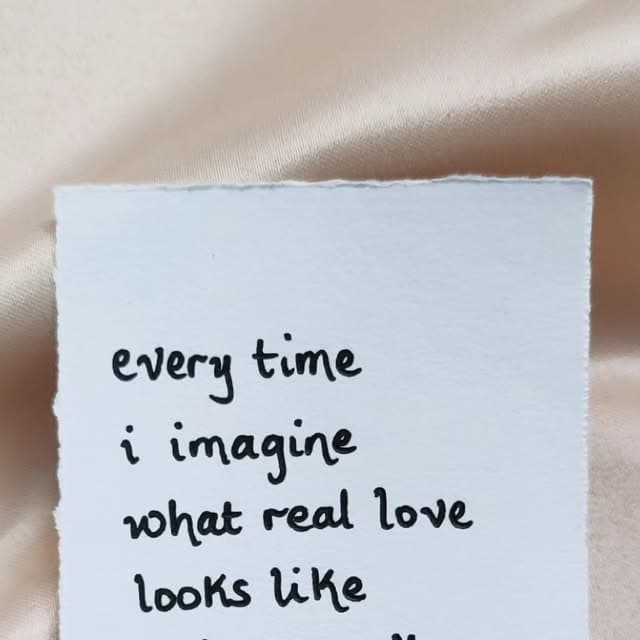 every time
i imagine
what real love
looks like